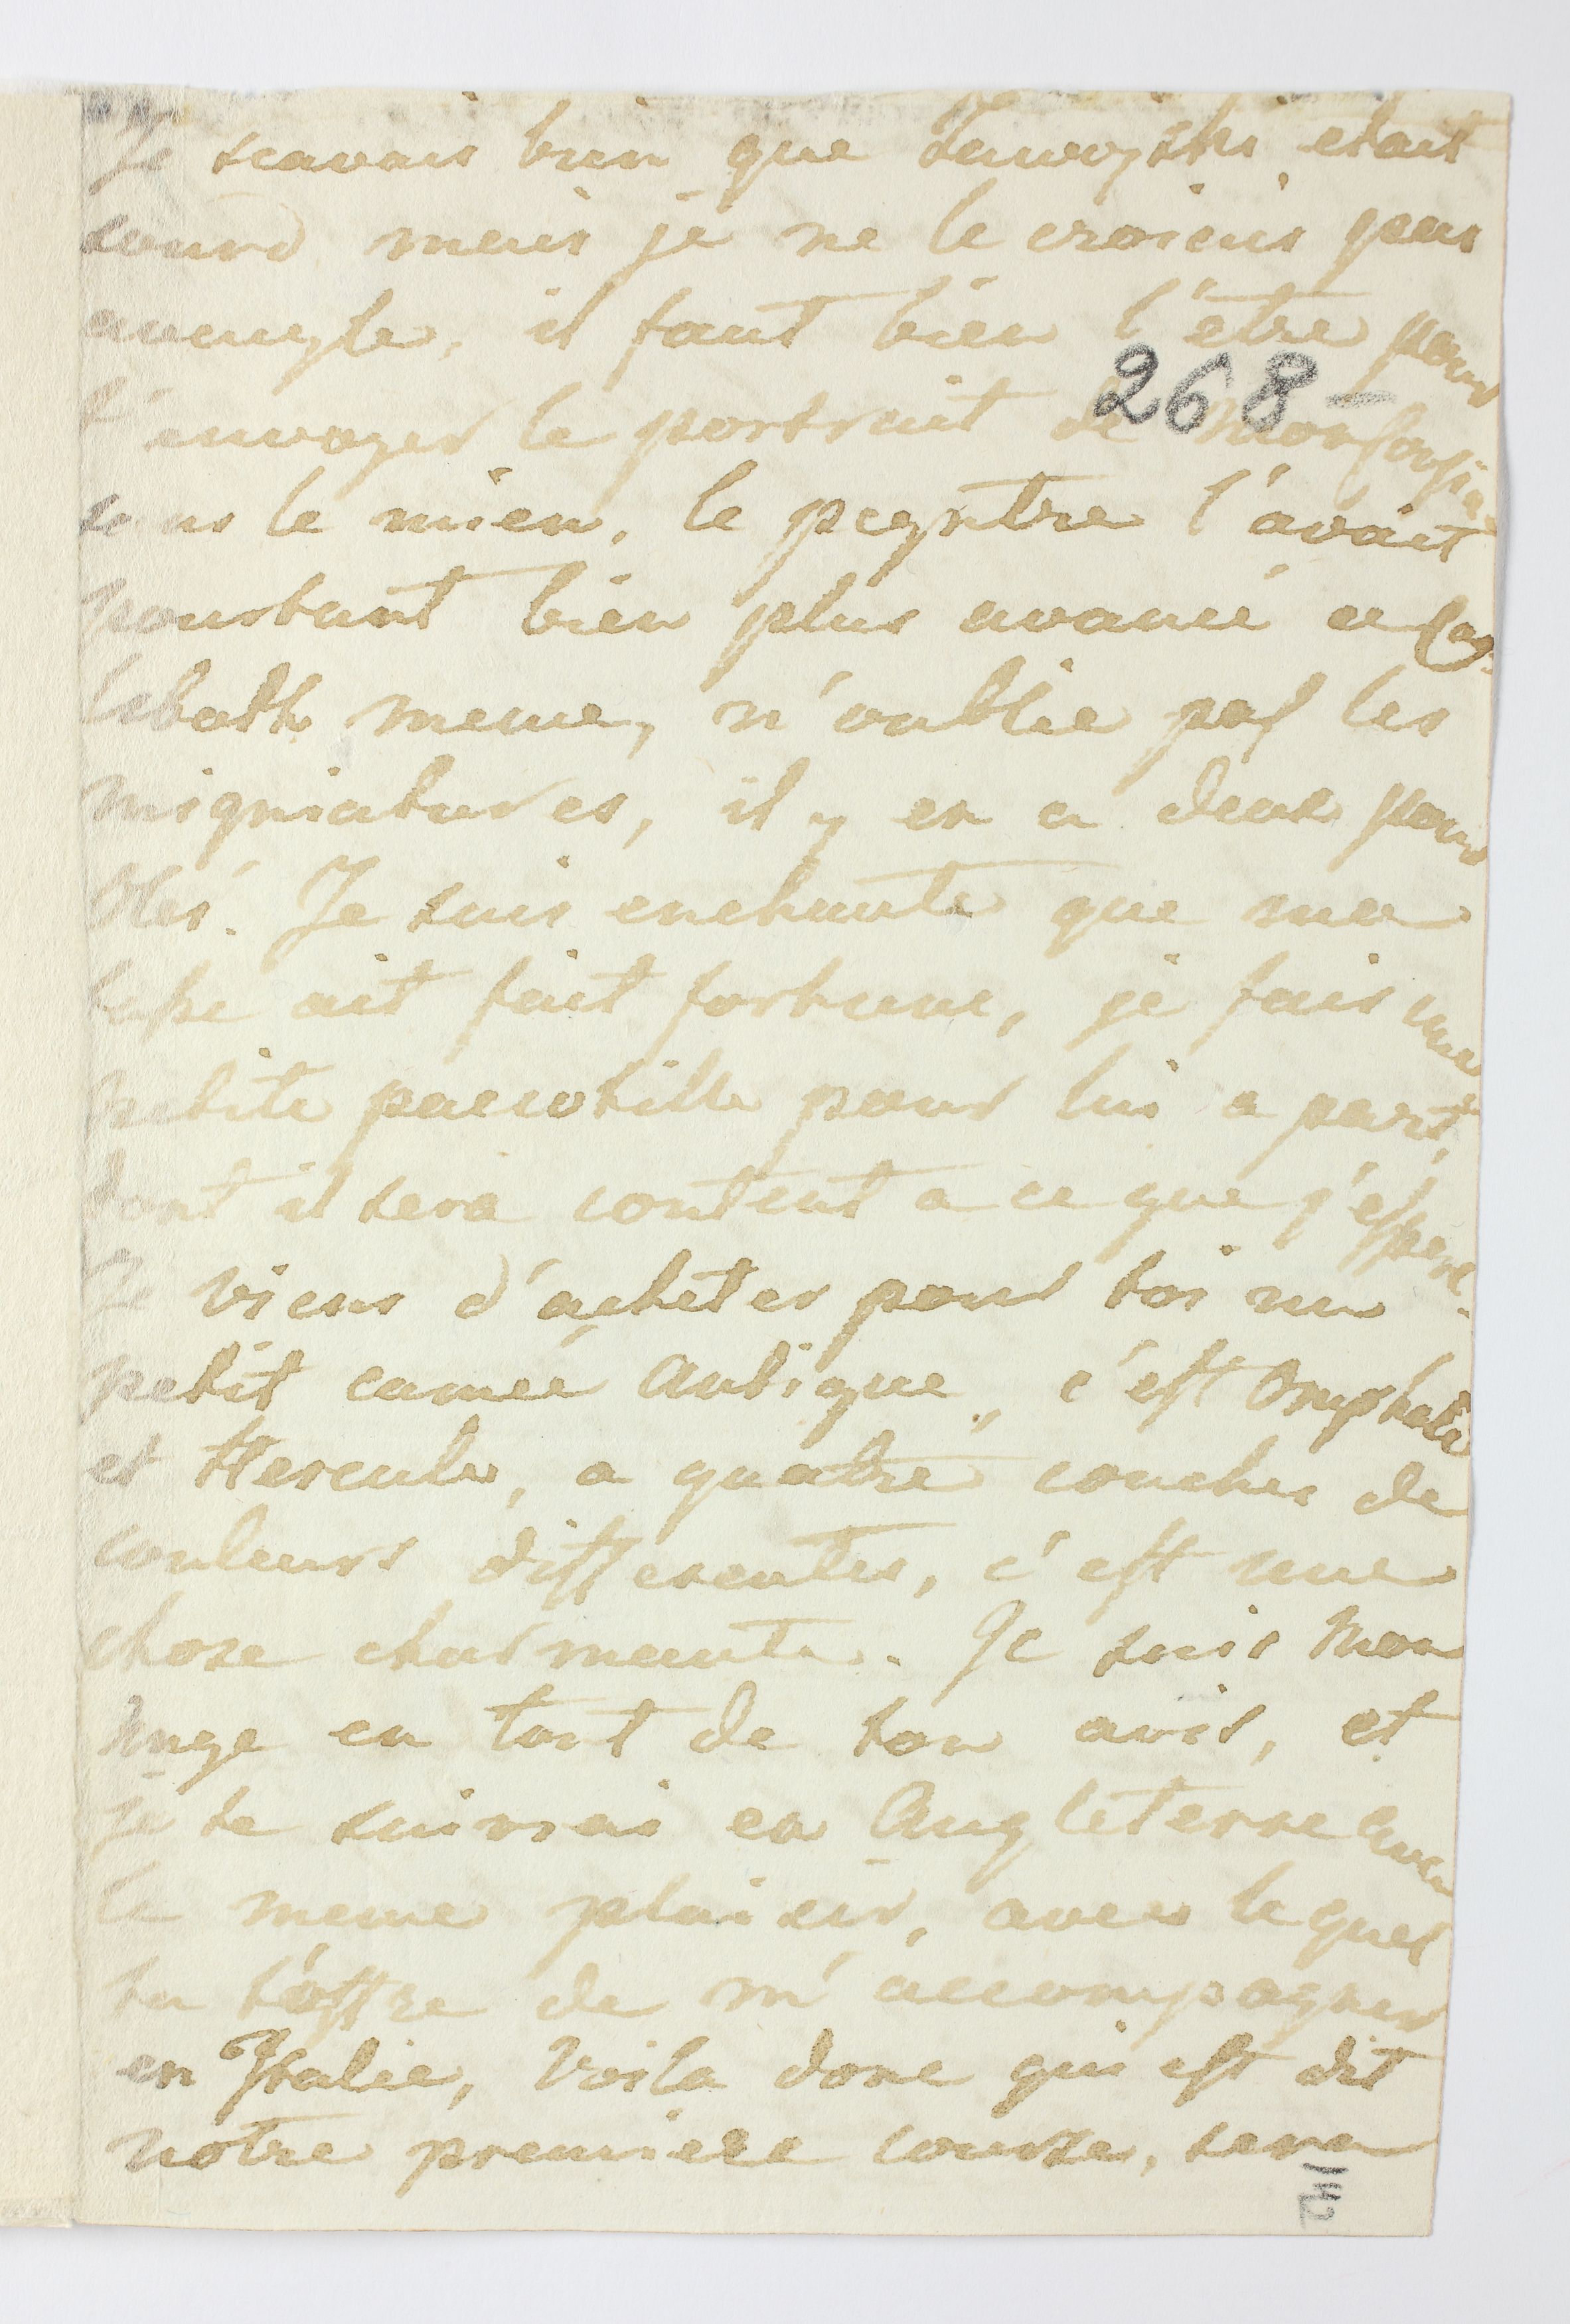 Je scavais bien que était
sourd mais je ne le croiens pas
aveugle, il faut bien l'être pour
t'envoyer le portrait de
268
sans le mien, le peyntre l'avait
pourtant bien plus avancé a
meme, n'oublie pas les
migniatures, il y en a deux pour
Je suis enchanté que ma
ait fait fortune, je fais une
petite pacotille pour lui a part,
dont il sera content a ce que j'espere.
Je viens d'acheter pour toi un
petit camée Antique, c'est Omphale
et Hercule, a quatre couches de
couleurs differentes, c'est une
chose charmante. Je suis Mon
Ange en tout de ton avis, et
je te suivrai en Angleterre avec
le meme plaisir, avec lequel
tu t'offre de m'accompagner
en Italie, Voila donc qui est dit
notre premiere course, sera
142